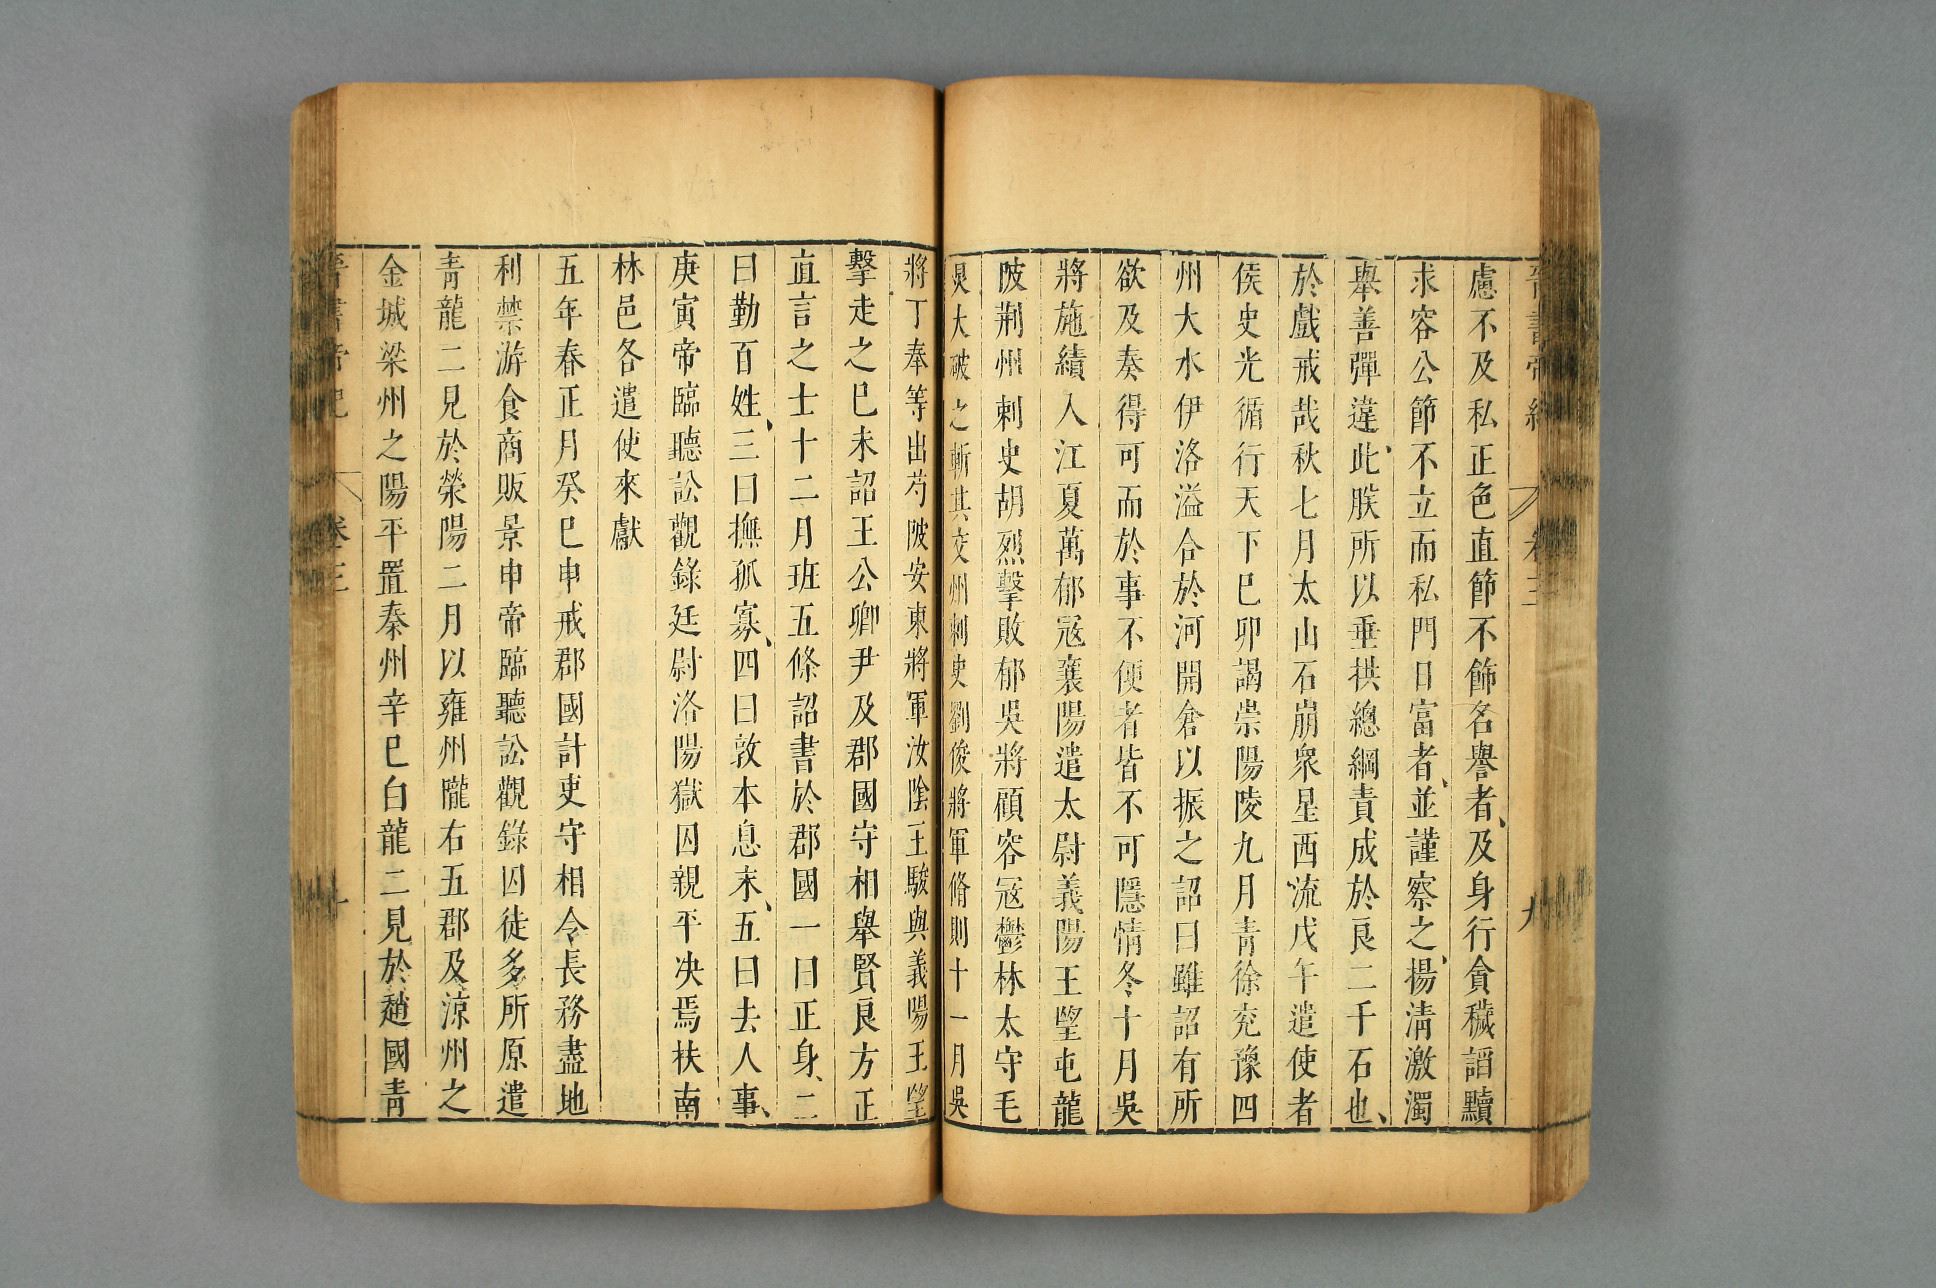 晉書帝紀 卷三 九
慮不及私正色直節不飾名譽者及身行貪穢諂黷
求容公節不立而私門日富者並謹察之揚清激濁
舉善彈違此朕所以垂拱總綱責成於良二千石也
於戲戒哉秋七月太山石崩衆星西流戊午遣使者
侯史光循行天下己卯謁崇陽陵九月青徐兖豫四
州大水伊洛溢合於河開倉以振之詔曰雖詔有所
欲及奏得可而於事不便者皆不可隱情冬十月吳
將施績入江夏萬郁寇襄陽遣太尉義陽王望屯龍
陂荆州刺史胡烈擊敗郁吳將顧容寇鬱林太守毛
炅大破之斬其交州刺史劉俊將軍脩則十一月吳
將丁奉等出芍陂安東將軍汝陰王駿與義陽王望
擊走之巳未詔王公卿尹及郡國守相舉賢良方正
直言之士十二月班五條詔書於郡國一曰正身二
曰勤百姓三曰撫孤寡四曰敦本息末五曰去人事
庚寅帝臨聽訟觀錄廷尉洛陽獄囚親平决焉扶南
林邑各遣使來獻
五年春正月癸巳申戒郡國計吏守相令長務盡地
利禁游食商販景申帝臨聽訟觀錄囚徒多所原遣
青龍二見於滎陽二月以雍州隴右五郡及涼州之
金城梁州之陽平置秦州辛巳白龍二見於趙國青
晉書帝紀 卷三